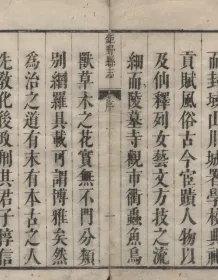 而封域山川城郭學校典禮
貢賦風俗古今宦蹟人物以
及仙釋列女藝文方技之流
細而陵墓寺觀市衢蟲魚鳥
野縣志
獸草木之花實無不門分類
別網羅具載可謂博雅矣然
為治之道有末有本古之人
先敎化後政刑其君子惇信